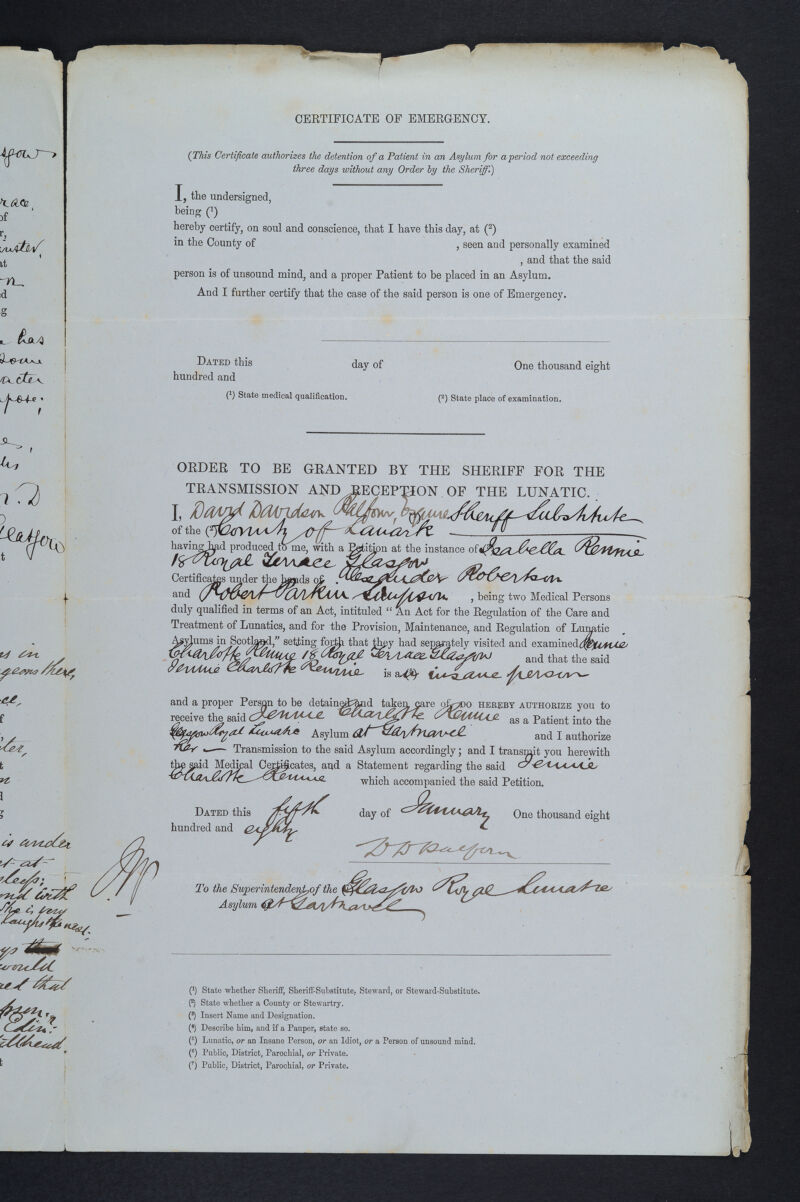 CERTIFICATE OF EMERGENCY.
(This Certificate authorizes the detention of a Patient in an Asylum for a period not exceeding
three days without any Order by the Sheriff.)
I, the undersigned,
being (1)
hereby certify, on soul and conscience, that I have this day, at (2)
in the County of , seen and personally examined
, and that the said
person is of unsound mind, and a proper Patient to be placed in an Asylum.
And I further certify that the case of the said person is one of Emergency.
DATED this day of One thousand eight
hundred and
(1) State medical qualification. (2) State place of examination.
ORDER TO BE GRANTED BY THE SHERIFF FOR THE
TRANSMISSION AND RECEPTION OF THE LUNATIC.
I, David Davidson Balfour, Esquire Sheriff Substitute
of the (2) County of Lanark
having had produced to me, with a Petition at the instance of Isabella Rennie
18 Royal Terrace Glasgow
Certificates under the hands of Alexander Robertson
and Robert Parkin Simpson , being two Medical Persons
duly qualified in terms of an Act, intituled “ An Act for the Regulation of the Care and
Treatment of Lunatics, and for the Provision, Maintenance, and Regulation of Lunatic
Asylums in Scotland,” setting forth that they had separately visited and examined Jennie
Charlotte Rennie 18 Royal Terrace Glasgow and that the said
Jennie Charlotte Rennie is a insane person
and a proper Person to be detained and taken care of, DO HEREBY AUTHORIZE you to
receive the said Jennie Charlotte Rennie as a Patient into the
Glasgow Royal Lunatic Asylum at Gartnavel and I authorize
her Transmission to the said Asylum accordingly; and I transmit you herewith
the said Medical Certificates, and a Statement regarding the said Jennie
Charlotte Rennie which accompanied the said Petition.
DATED this fifth day of January One thousand eight
hundred and eighty
D D Balfour
To the Superintendent of the Glasgow Royal Lunatic
Asylum at Gartnavel
(1) State whether Sheriff, Sheriff-Substitute, Steward, or Steward-Substitute.
(2) State whether a County or Stewartry.
(3) Insert Name and Designation.
(4) Describe him, and if a Pauper, state so.
(5) Lunatic, or an Insane Person, or an Idiot, or a Person of unsound mind.
(6) Public, District, Parochial, or Private.
(7) Public, District, Parochial, or Private.